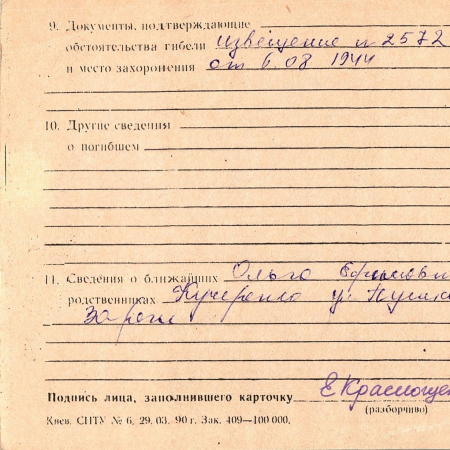 9. Документы, подтверждающие
обстоятельства гибели извещение н 2572
и место захоронения от 6.08 1944
10. Другие сведения
о погибшем
11. Сведения о ближайших Ольга
родственниках Кучеренко у.
Подпись лица, заполнившего карточку
(разборчиво)
Киев. СПТУ № 6. 29. 03. 90 г. Зак. 409—100 000.